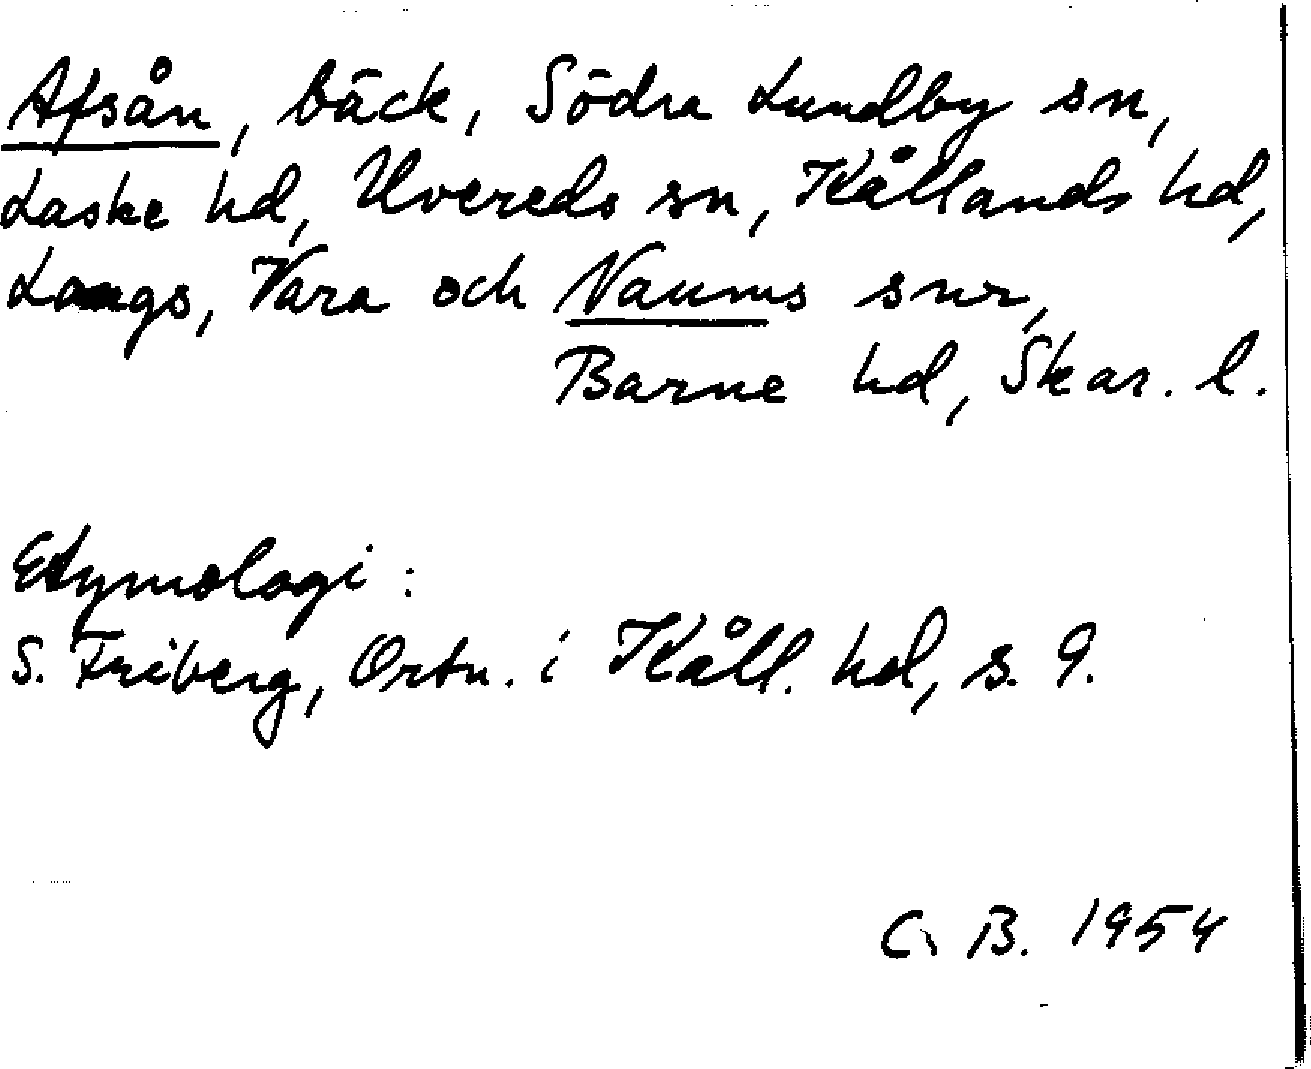 Afsån, bäck, Södra Lundby sn,
Laske hd, Uvereds sn, Kållands hd,
Langs, Vara och Naums snr,
Barne hd, Skar. l.
Etymologi:
S. Friberg, Ortn. i Kåll. hd, s. 9.
C. B. 1954